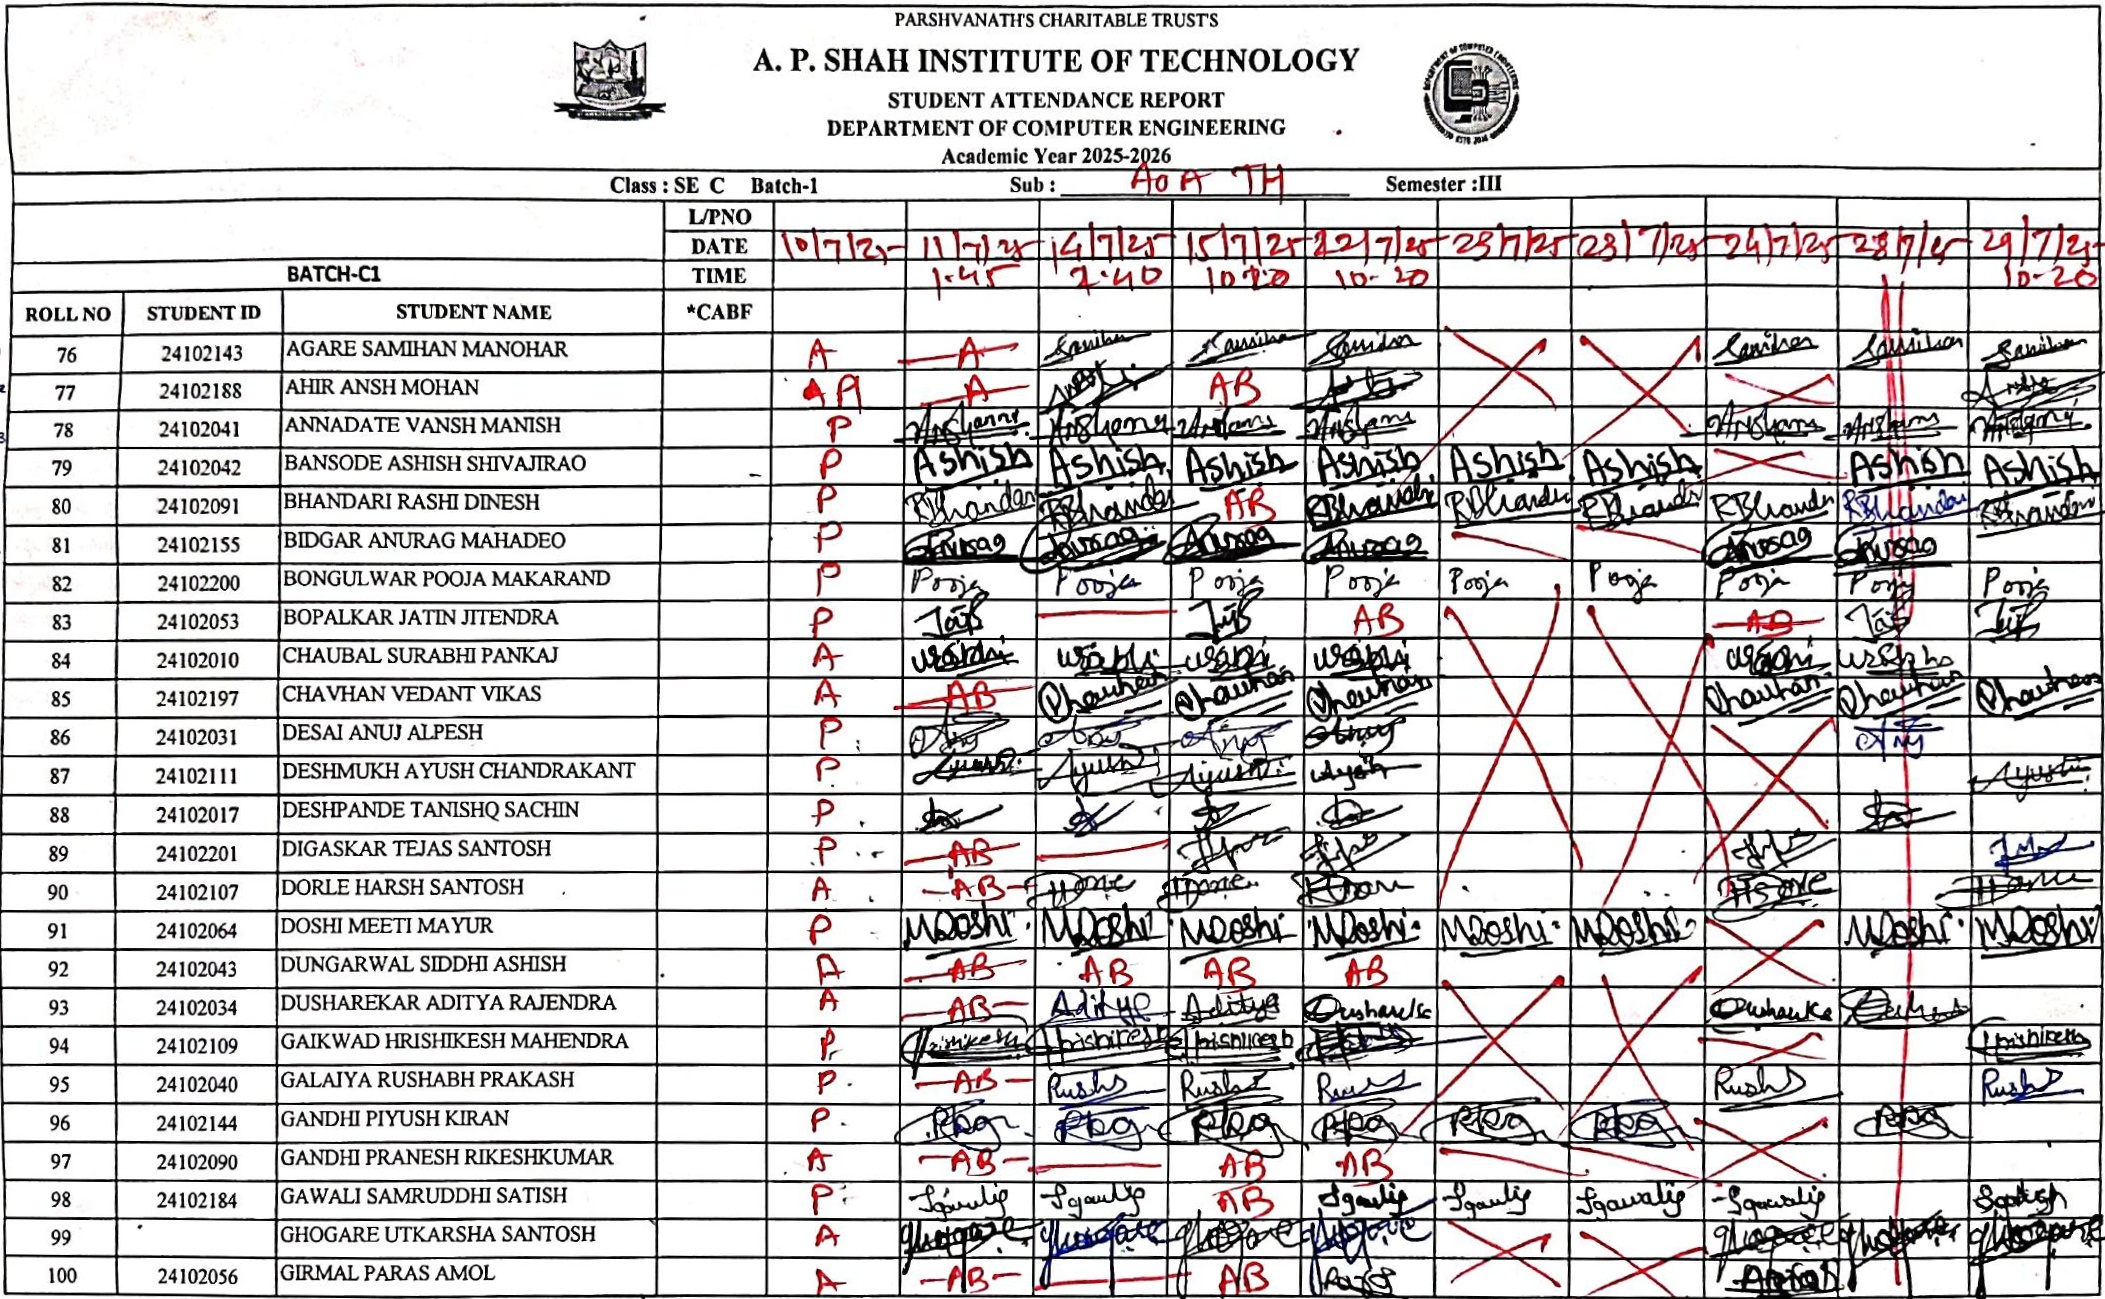 PARSHVANATH'S CHARITABLE TRUST'S
A. P. SHAH INSTITUTE OF TECHNOLOGY
STUDENT ATTENDANCE REPORT
DEPARTMENT OF COMPUTER ENGINEERING
Academic Year 2025-2026
Class : SE C Batch-1 Sub : AoA TH Semester :III
L/PNO
DATE 10/7/25 11/7/25 14/7/25 15/7/25 22/7/25 23/7/25 23/7/25 24/7/25 28/7/25 29/7/25
BATCH-C1 TIME 1.45 2.40 10.20 10-20 10-20
ROLL NO STUDENT ID STUDENT NAME *CABF
76 24102143 AGARE SAMIHAN MANOHAR A A Samihan Samihan Samihan Samihan Samihan Samihan
77 24102188 AHIR ANSH MOHAN A A AB
78 24102041 ANNADATE VANSH MANISH P
79 24102042 BANSODE ASHISH SHIVAJIRAO P Ashish Ashish Ashish Ashish Ashish Ashish Ashish Ashish
80 24102091 BHANDARI RASHI DINESH P RBhandari RBhandari AB RBhandari RBhandari RBhandari RBhandari RBhandari RBhandari
81 24102155 BIDGAR ANURAG MAHADEO P Anurag Anurag Anurag Anurag Anurag Anurag
82 24102200 BONGULWAR POOJA MAKARAND P Pooja Pooja Pooja Pooja Pooja Pooja Pooja Pooja Pooja
83 24102053 BOPALKAR JATIN JITENDRA P AB AB
84 24102010 CHAUBAL SURABHI PANKAJ A
85 24102197 CHAVHAN VEDANT VIKAS A AB Chauhan Chauhan Chauhan Chauhan Chauhan Chauhan
86 24102031 DESAI ANUJ ALPESH P
87 24102111 DESHMUKH AYUSH CHANDRAKANT P Ayush Ayush Ayush Ayush Ayush
88 24102017 DESHPANDE TANISHQ SACHIN P
89 24102201 DIGASKAR TEJAS SANTOSH P AB
90 24102107 DORLE HARSH SANTOSH A AB
91 24102064 DOSHI MEETI MAYUR P MDoshi MDoshi MDoshi MDoshi MDoshi MDoshi MDoshi MDoshi
92 24102043 DUNGARWAL SIDDHI ASHISH A AB AB AB AB
93 24102034 DUSHAREKAR ADITYA RAJENDRA A AB Aditya Aditya
94 24102109 GAIKWAD HRISHIKESH MAHENDRA P Hrishikesh Hrishikesh Hrishikesh Hrishikesh
95 24102040 GALAIYA RUSHABH PRAKASH P AB Rushs
96 24102144 GANDHI PIYUSH KIRAN P PKG PKG PKG PKG PKG PKG PKG
97 24102090 GANDHI PRANESH RIKESHKUMAR A AB AB AB
98 24102184 GAWALI SAMRUDDHI SATISH P Sgawlig Sgawlig AB Sgawlig Sgawlig Sgawalig Sgawalig
99 GHOGARE UTKARSHA SANTOSH A Ghogare Ghogare Ghogare Ghogare Ghogare Ghogare Ghogare
100 24102056 GIRMAL PARAS AMOL A AB AB